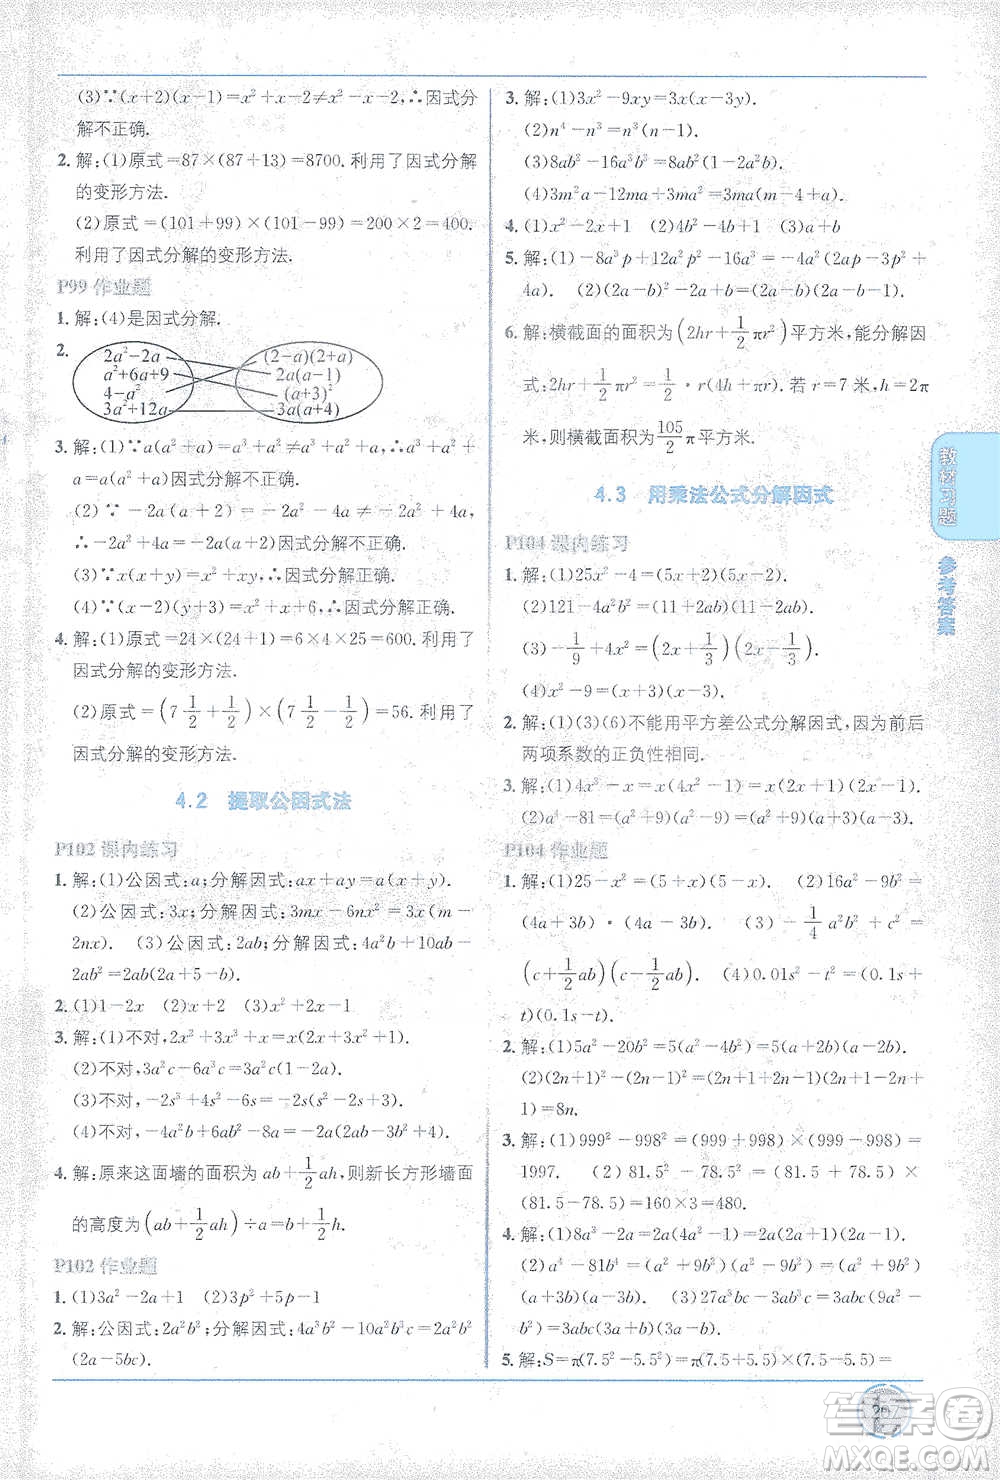 (3)∵(x+2)(x-1)=x²+x-2≠x²-x-2,∴因式分
解不正确.
2. 解:(1)原式=87×(87+13)=8700. 利用了因式分解
的变形方法.
(2)原式=(101+99)×(101-99)=200×2=400.
利用了因式分解的变形方法.
P99 作业题
1. 解:(4)是因式分解.
2.
2a²-2a (2-a)(2+a)
a²+6a+9 2a(a-1)
4-a² (a+3)²
3a²+12a 3a(a+4)
3. 解:(1)∵a(a²+a)=a³+a²≠a³+a²+a,∴a³+a²+
a=a(a²+a)因式分解不正确.
(2)∵-2a(a-2)=-2a²+4a≠-2a²-4a,
∴-2a²-4a=-2a(a-2)因式分解不正确.
(3)∵x(x+y)=x²+xy,∴因式分解正确.
(4)∵-2x(x-3)=-2x²+6x,∴因式分解正确.
4. 解:(1)原式=24×(24+1)=6×4×25=600. 利用了
因式分解的变形方法.
(2)原式=(7 1/2+1/2)×(7 1/2-1/2)=56. 利用了
因式分解的变形方法.
4.2 提取公因式法
P102 课内练习
1. 解:(1)公因式:a;分解因式:ax+ay=a(x+y).
(2)公因式:3x;分解因式:3mx-6nx²=3x(m-
2nx). (3)公因式:2ab;分解因式:4a²b+10ab-
2ab²=2ab(2a+5-b).
2. (1)1-2x (2)x+2 (3)x²+2x-1
3. 解:(1)不对,2x²+3x³+x=x(2x+3x²+1).
(2)不对,3a²c-6a³c=3a²c(1-2a).
(3)不对,-2s³+4s²-6s=-2s(s²-2s+3).
(4)不对,-4a²b+6ab²-8a=-2a(2ab-3b²+4).
4. 解:原来这面墙的面积为ab+1/2ah,则新长方形墙面
的高度为(ab+1/2ah)÷a=b+1/2h.
P102 作业题
1. (1)3a²-2a+1 (2)3p²+5p-1
2. 解:公因式:2a²b²;分解因式:4a³b²-10a²b³c=2a²b²
(2a-5bc).
3. 解:(1)3x²-9xy=3x(x-3y).
(2)n⁴-n³=n³(n-1).
(3)8ab²-16a³b³=8ab²(1-2a²b).
(4)3m²a-12ma+3ma²=3ma(m-4+a).
4. (1)x²-2x+1 (2)4b²-1 (3)a+b
5. 解:(1)-8a³p-16a⁴-4a²p²=-4a²(2ap+p²+
4a). (2)2a(y-z)-3b(z-y)=(y-z)(2a+3b).
6. 解:横截面的面积为(2hr+1/2πr²)平方米,能分解因
式:2hr+1/2πr²=1/2·r(4h+πr). 若r=7米,h=2π
米,则横截面积为105/2π平方米.
4.3 用乘法公式分解因式
P104 课内练习
1. 解:(1)25x²-4=(5x+2)(5x-2).
(2)121-4a²b²=(11+2ab)(11-2ab).
(3)-1/9+4x²=(2x+1/3)(2x-1/3).
(4)x²-9=(x+3)(x-3).
2. 解:(1)(3)(6)不能用平方差公式分解因式,因为前后
两项系数的正负性相同.
3. 解:(1)4x³-x=x(2x+1)(2x-1).
(2)a⁴-81=(a²+9)(a+3)(a-3).
P104 作业题
1. 解:(1)25-x²=(5+x)(5-x). (2)16a²-9b²=
(4a+3b)(4a-3b). (3)-1/4a²b²+c²=
(c+1/2ab)(c-1/2ab). (4)0.01s²-t²=(0.1s+
t)(0.1s-t).
2. 解:(1)5a²-20b²=5(a+2b)(a-2b).
(2)(2n+1)²-(2n-1)²=(2n+1+2n-1)(2n+1-2n
+1)=8n.
3. 解:(1)999²-998²=(999+998)×(999-998)=
1997. (2)81.5²-78.5²=(81.5+78.5)×
(81.5-78.5)=160×3=480.
4. 解:(1)8a³-2a=2a(4a²-1)=2a(2a+1)(2a-1).
(2)a⁴-81b⁴=(a²+9b²)(a²-9b²)=(a²+9b²)
(a+3b)(a-3b). (3)27a³bc-3ab³c=3abc(9a²-
b²)=3abc(3a+b)(3a-b).
5. 解:S=π(7.5²-5.5²)=π(7.5+5.5)×(7.5-5.5)=
教材习题
参考答案
答案卷
MXQE.COM